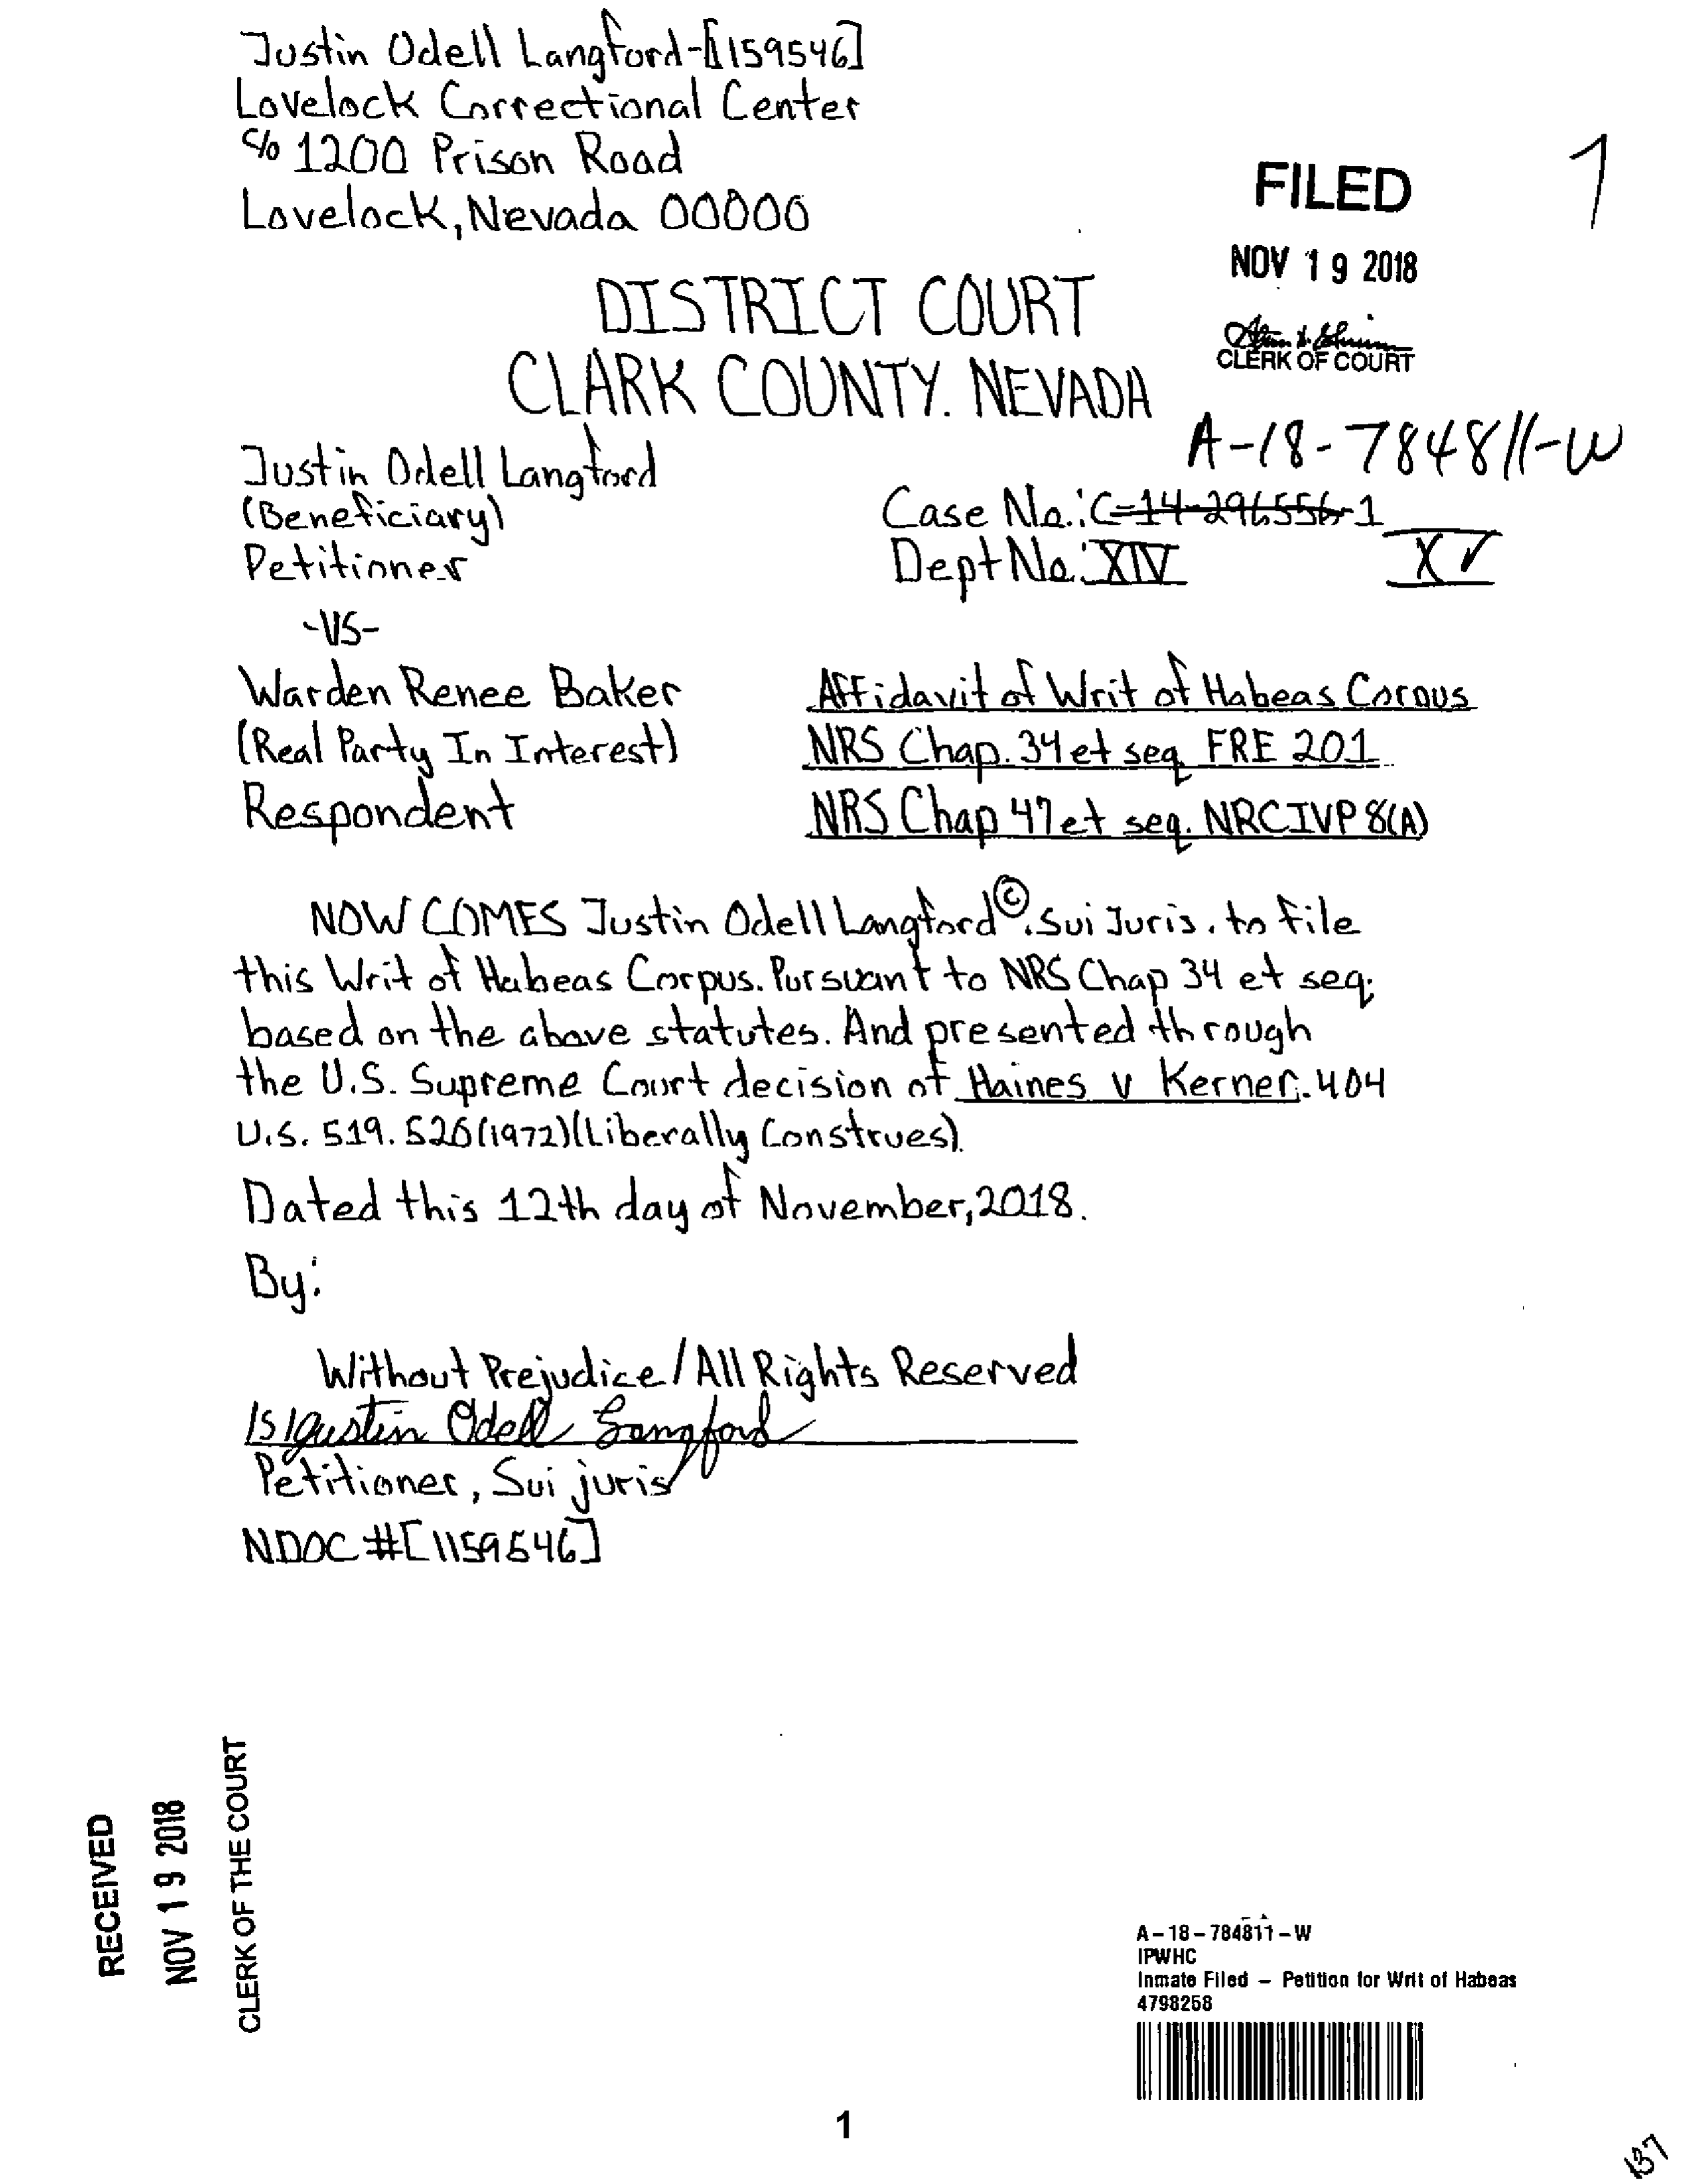 Justin Odell Langford-[1159546]
Lovelock Correctional Center
c/o 1200 Prison Road
Lovelock, Nevada 00000
FILED
1
NOV 19 2018
CLERK OF COURT
DISTRICT COURT
CLARK COUNTY. NEVADA
A-18-784811-W
Justin Odell Langford
(Beneficiary)
Petitioner
Case No.: C-14-296556-1
Dept No: XIV
XV
-VS-
Warden Renee Baker
(Real Party In Interest)
Respondent
Affidavit of Writ of Habeas Corpus
NRS Chap. 34 et seq. FRE 201
NRS Chap 47 et seq. NRCIVP 8(A)
NOW COMES Justin Odell Langford©. Sui Juris. to file
this Writ of Habeas Corpus. Pursuant to NRS Chap 34 et seq;
based on the above statutes. And presented through
the U.S. Supreme Court decision of Haines v Kerner. 404
U.S. 519. 520 (1972)(Liberally Construes).
Dated this 12th day of November, 2018.
By:
Without Prejudice/All Rights Reserved
/S/ Justin Odell Langford
Petitioner, Sui juris
NDOC #[1159546]
RECEIVED
NOV 19 2018
CLERK OF THE COURT
A-18-784811-W
IPWHC
Inmate Filed - Petition for Writ of Habeas
4798258
1
137